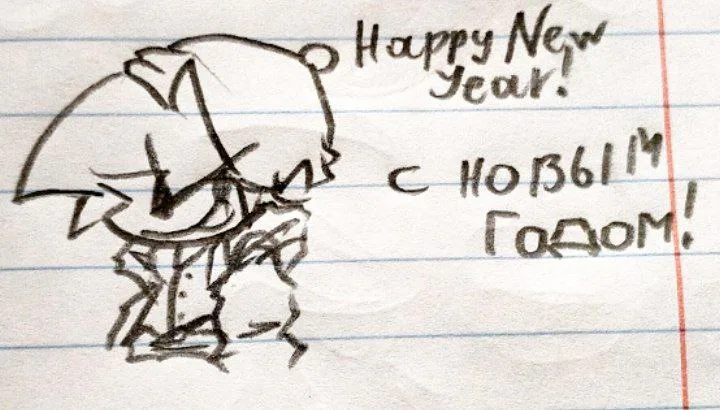 Happy New
Year!
С НОВЫМ
ГОДОМ!